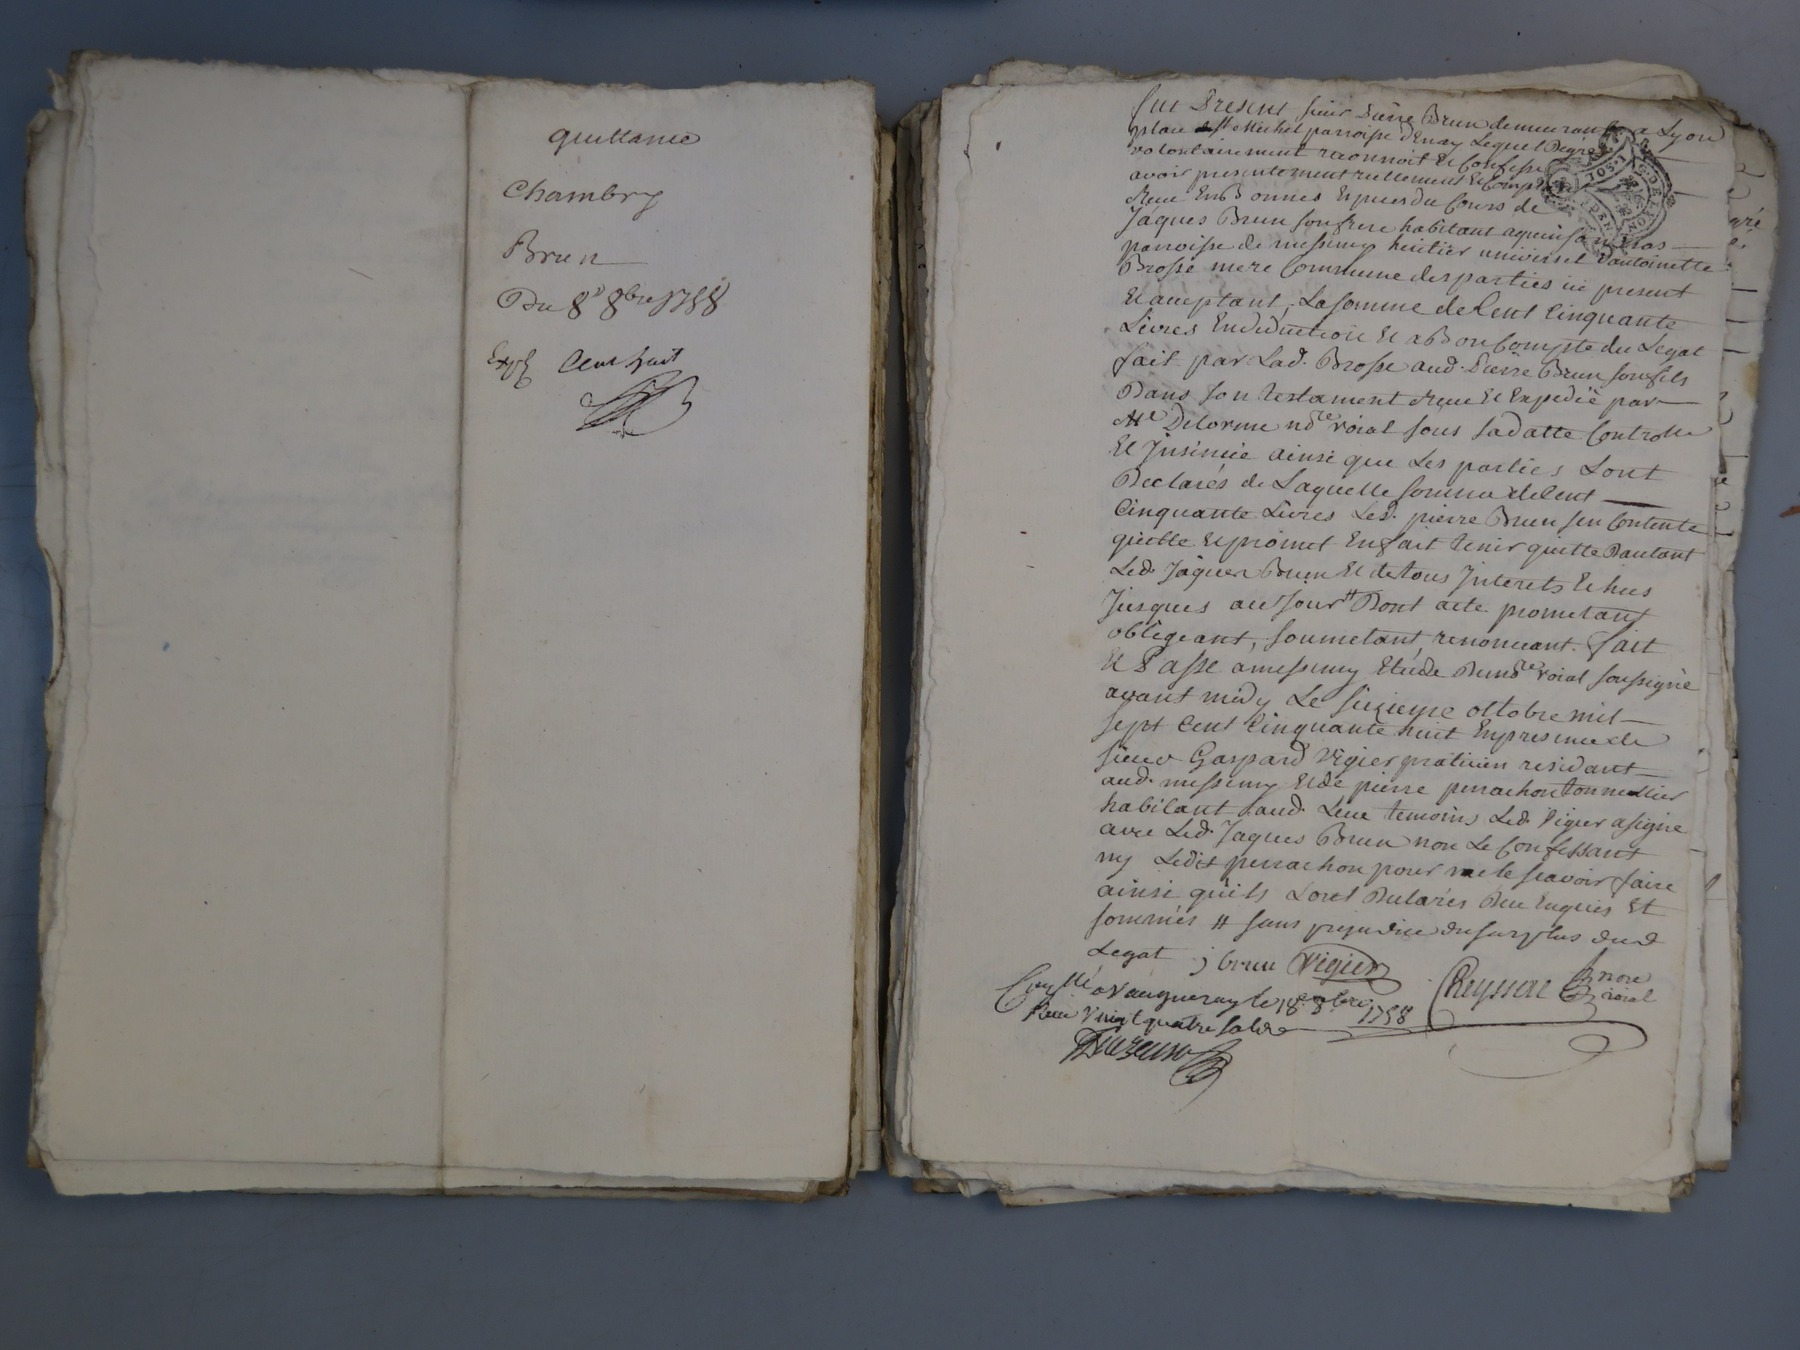 quittance
Chambry
Brun
Du 8e 8bre 1758
Expé Cent huit
fut Present sieur Pierre Brun demeurant a Lyon
place st Michel parroisse d'Enay Lequel Degré
volontairement reconnoit Et Confesse
avoir presentement reellement Et Compt
Receu En Bonnes Especes du Cours de
Jaques Brun son frere habitant a
parroisse de messimy heritier universel d'antoinette
Brosse mere Commune des parties ici present
Et acceptant, La somme de Cent Cinquante
Livres En déduction Et a Bon Compte du Legat
fait par Lad. Brosse aud. Pierre Brun son fils
Dans son testament Receu Et Expedié par
Me Delorme nore roial sous sa datte Controllé
Et Insinué ainsi que Les parties L'ont
Declarés de Laquelle somme de Cent
Cinquante Livres Led. pierre Brun s'en Contente
quitte Et promet En fait tenir quitte Dautant
Led. Jaques Brun Et de tous Interets Echus
Jusques au Jour # Dont acte. promettant
obligeant, soumetant, renonceant. fait
Et Passé a messimy Etude Du nore roial soussigné
avant midy Le sixieme octobre mil
sept Cent Cinquante huit En presence de
sieur Gaspard Vigier praticien residant
aud. messimy Et de pierre perrachon tonnellier
habitant aud. Lieu temoins Led. Vigier a signé
avec Led. Jaques Brun non Le Confessant
ny Ledit perrachon pour ne le scavoir faire
ainsi qu'ils L'ont Declarés Deu Enquis Et
sommés # sans prejudice du surplus dud
Legat ; brun Vigier
Cheyssac nore
roial
Conllé a Vaugneray le 18 8bre 1758
Receu Vingt quatre sols